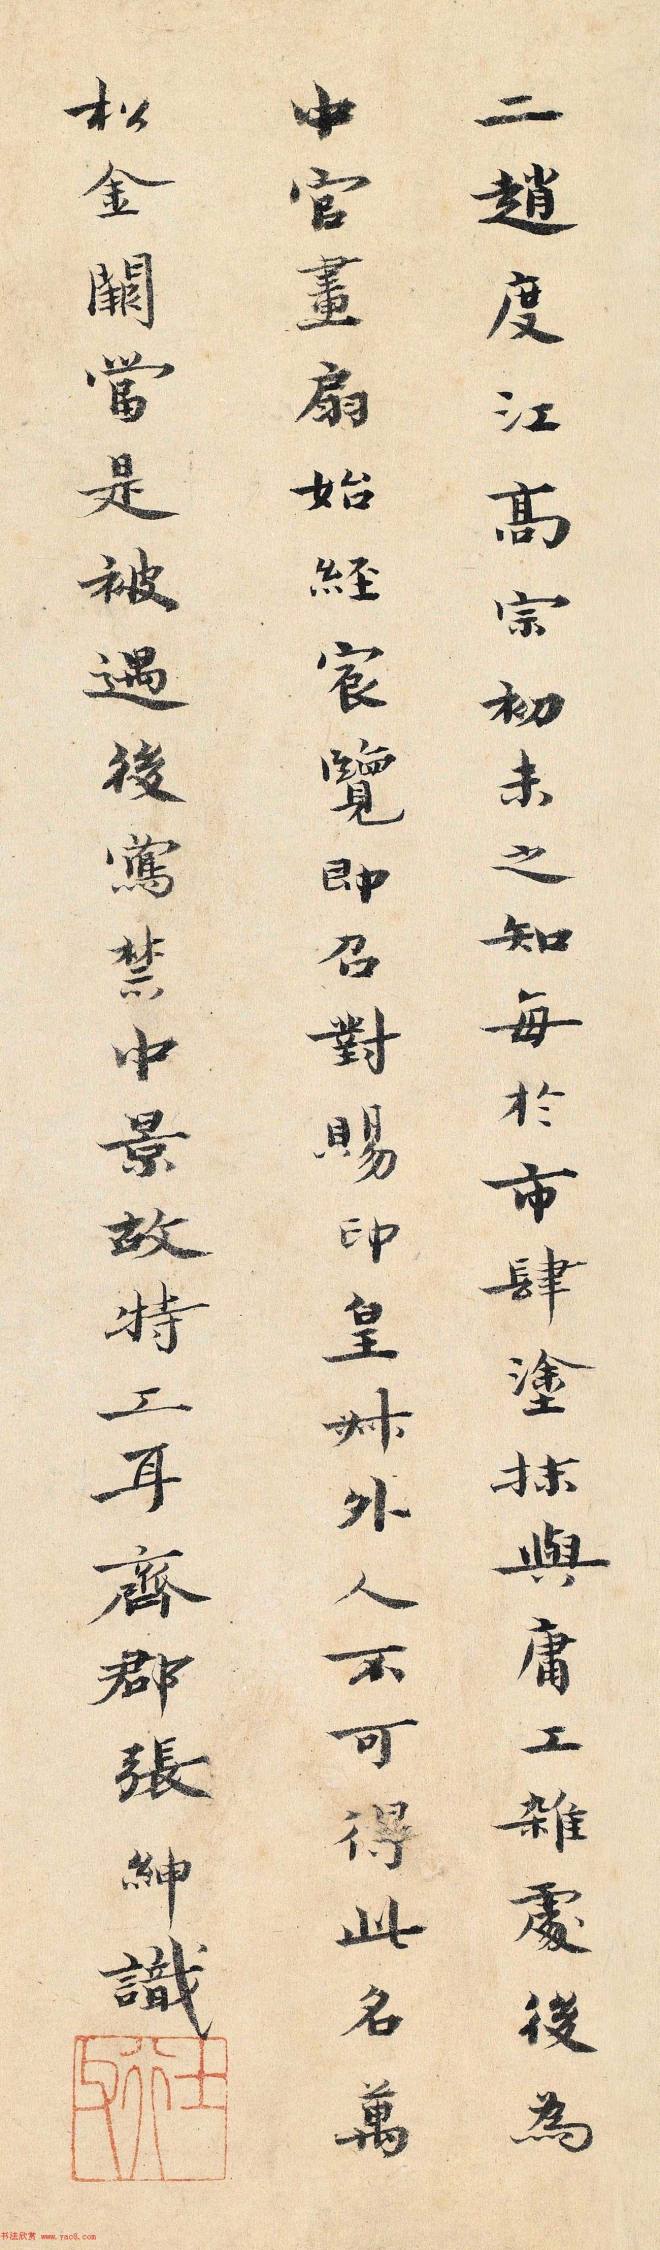 二趙度江高宗初未之知每於市肆塗抹與庸工雜處後為
中官畫扇始經宸覽即召對賜印皇妹外人不可得此名萬
松金闕當是被遇後寫禁中景故特工耳齊郡張紳識
书法欣赏 www.yac8.com